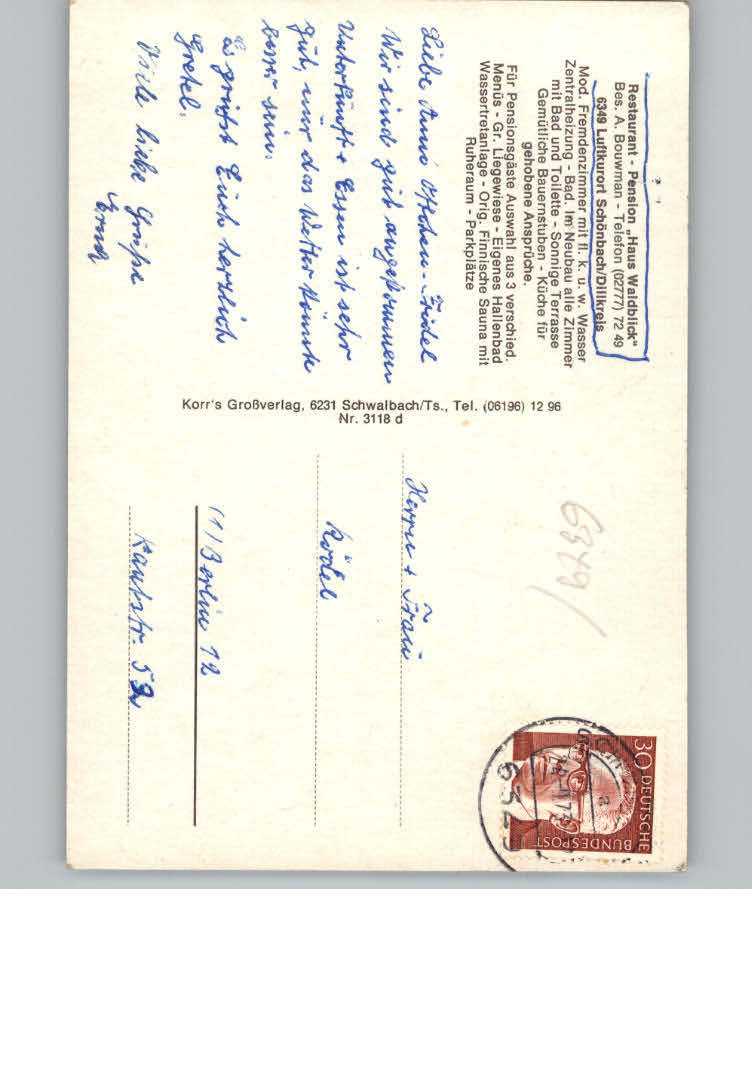 Restaurant - Pension „Haus Waldblick"
Bes. A. Bouwman - Telefon (02777) 72 49
6349 Luftkurort Schönbach/Dillkreis
Mod. Fremdenzimmer mit fl. k. u. w. Wasser
Zentralheizung - Bad. Im Neubau alle Zimmer
mit Bad und Toilette - Sonnige Terrasse
Gemütliche Bauernstuben - Küche für
gehobene Ansprüche.
Für Pensionsgäste Auswahl aus 3 verschied.
Menüs - Gr. Liegewiese - Eigenes Hallenbad
Wassertretanlage - Orig. Finnische Sauna mit
Ruheraum - Parkplätze
Liebe Änni
Wir sind gut angekommen
Unterkunft + Essen ist sehr
gut, nur das Wetter könnte
besser sein.
Es grüßt Euch herzlich
Gretel.
Viele liebe Grüße
Korr's Großverlag, 6231 Schwalbach/Ts., Tel. (06196) 12 96
Nr. 3118 d
6349/
30 DEUTSCHE
BUNDESPOST
Herrn + Frau
Rödel
(1) Berlin 12
Kantstr.